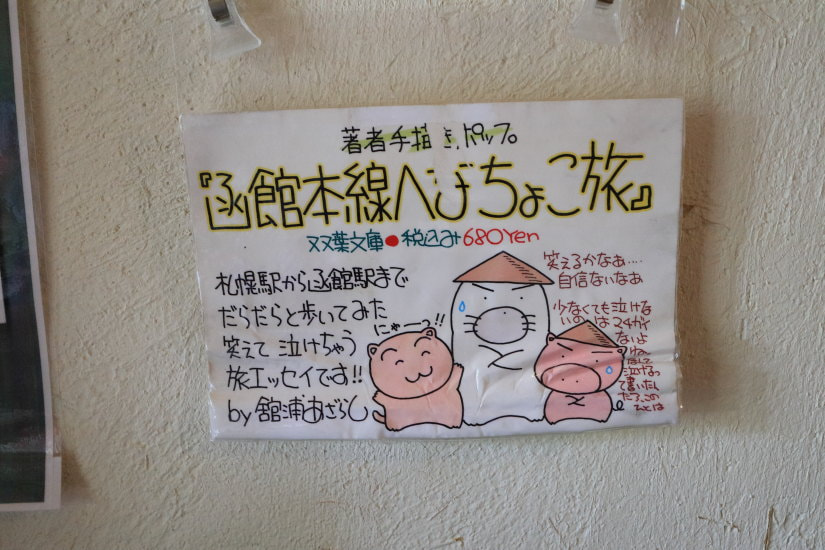 著者手描き、ポップ。
『函館本線へなちょこ旅』
双葉文庫●税込み680Yen
札幌駅から函館駅まで
だらだらと歩いてみた
笑えて泣けちゃう
旅エッセイです!!
by 舘浦あざらし
にゃーっ!!
笑えるかなぁ‥‥
自信ないなぁ
少なくても泣けな
いのは
ないよ
ねー